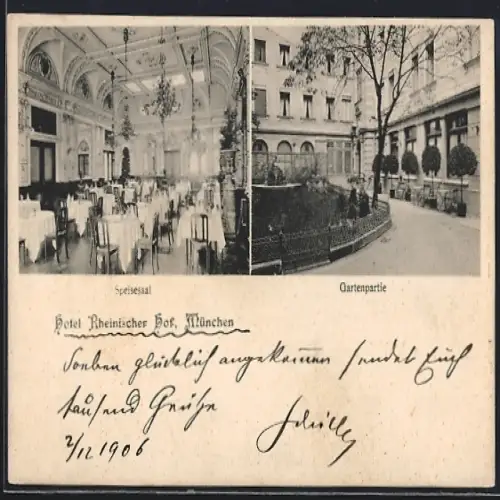 Speisesaal
Gartenpartie
Hotel Rheinischer Hof, München
Soeben glücklich angekommen sendet Euch
tausend Grüße
2/12 1906